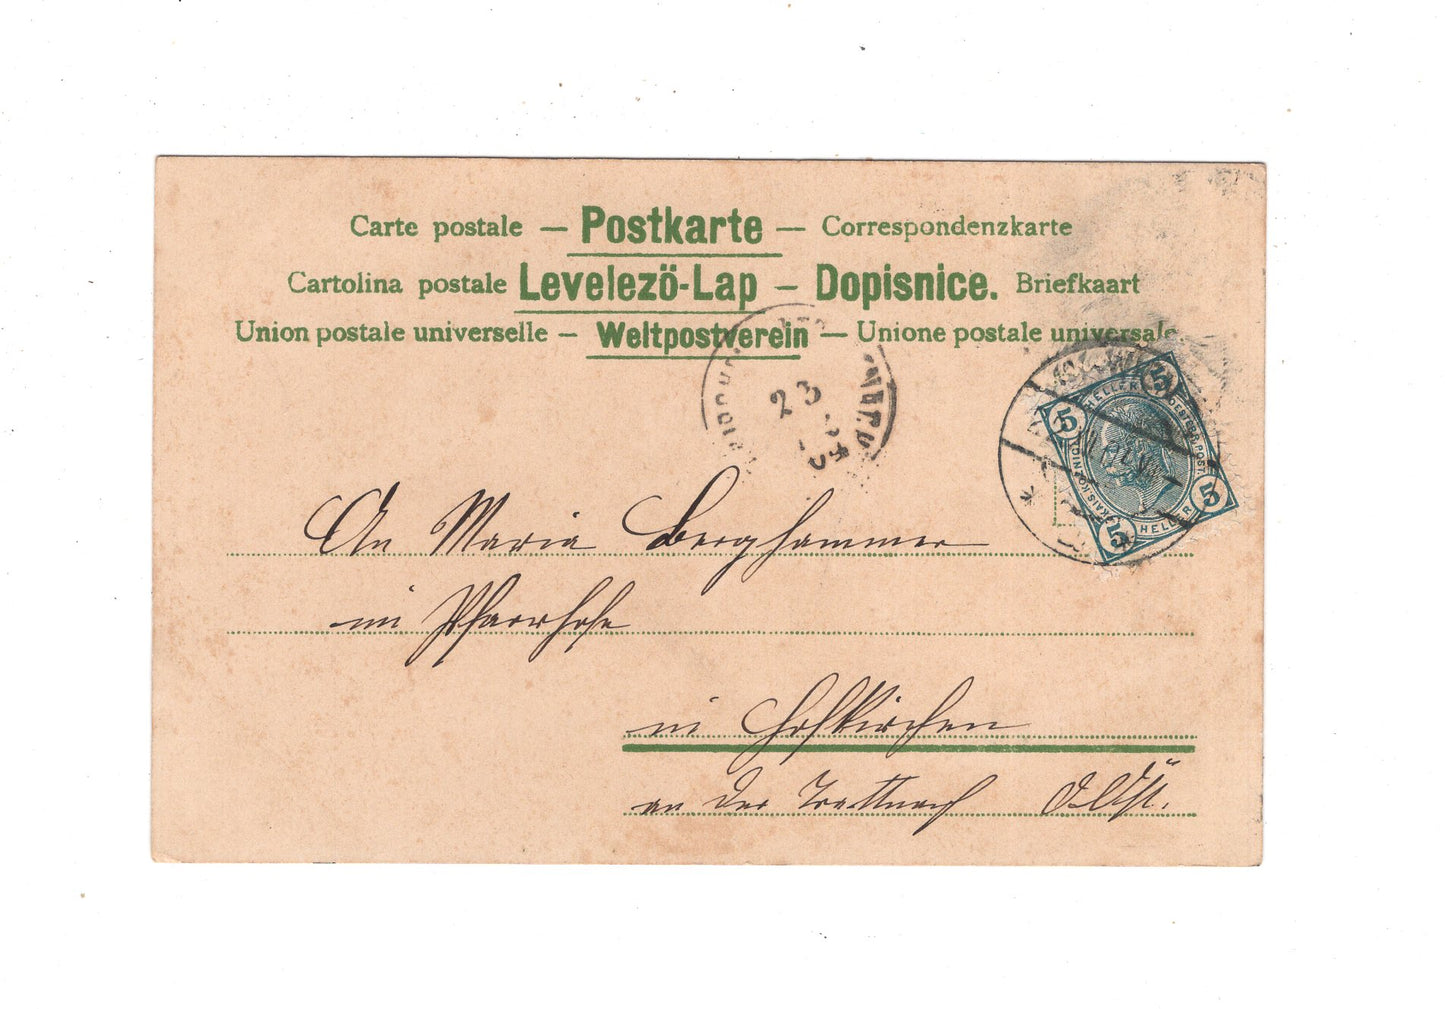 Carte postale — Postkarte — Correspondenzkarte
Cartolina postale Levelező-Lap — Dopisnice. Briefkaart
Union postale universelle — Weltpostverein — Unione postale universale
23
5 HELLER 5
KAIS. KÖNIGL. OESTERR. POST.
5 HELLER 5
An Maria Berghammer
im Pfarrhofe
in Hofkirchen
an der Trattnach O.Öst.